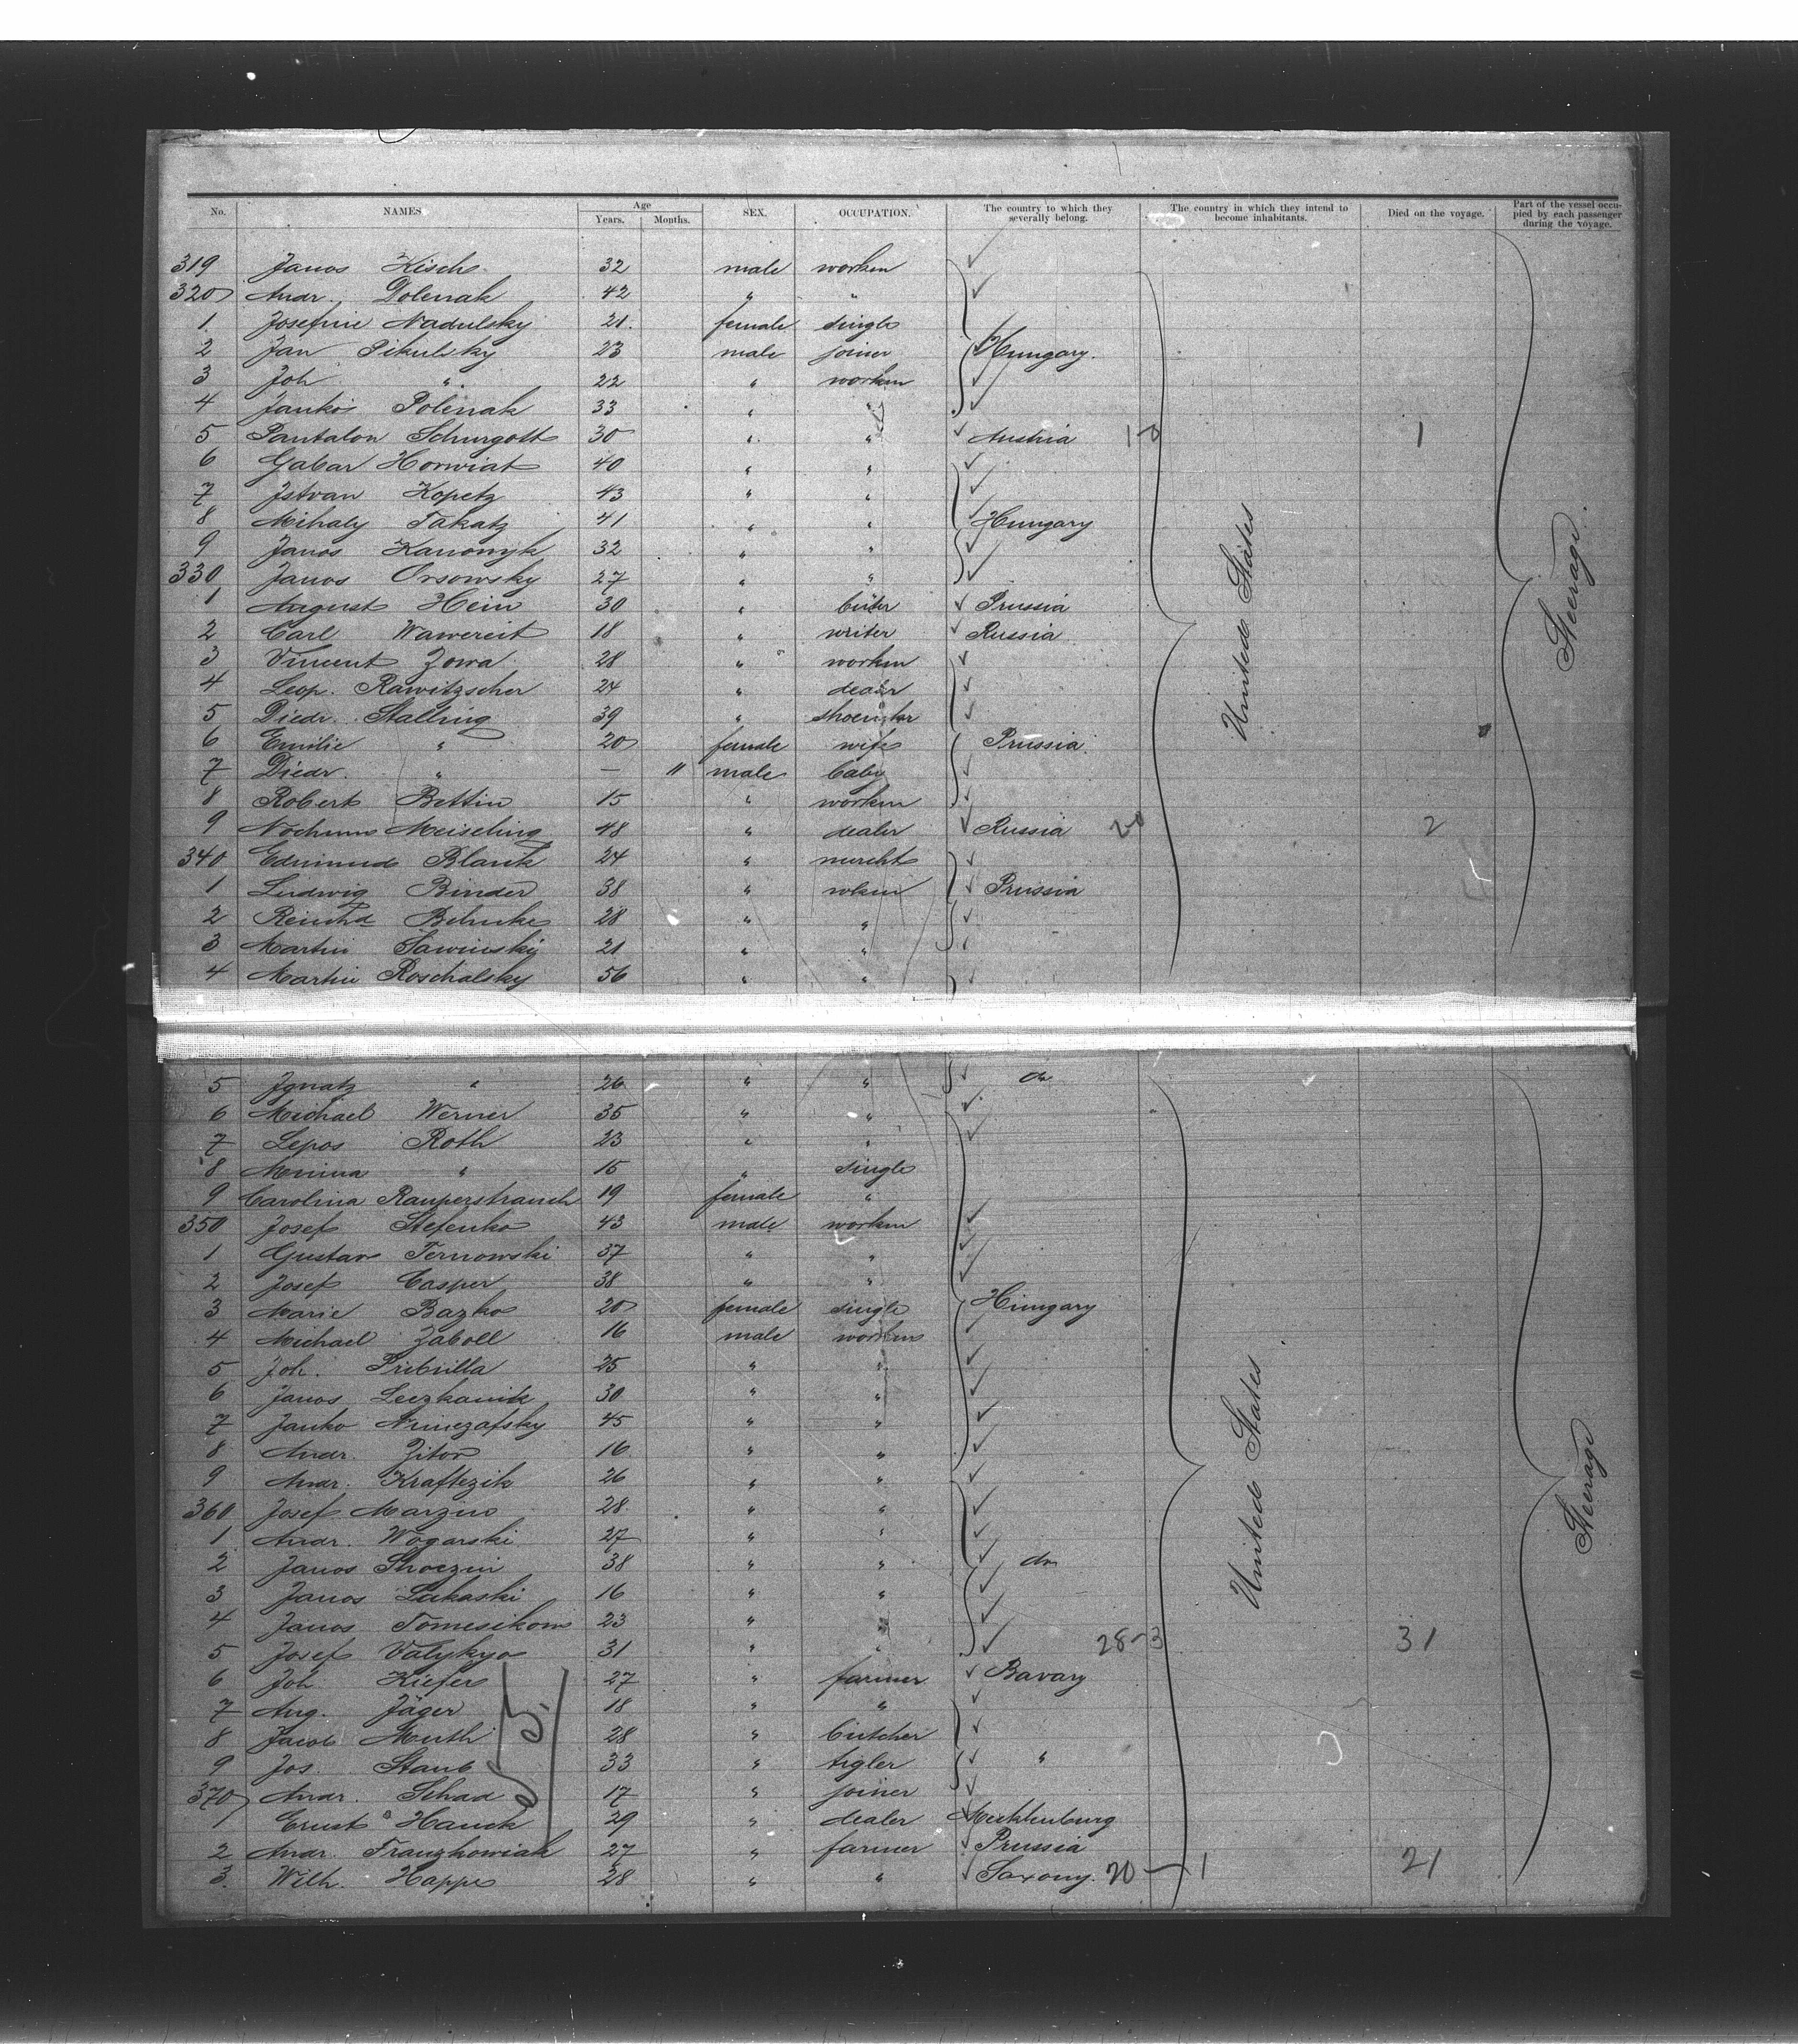 No. NAMES Age Years. Months. SEX. OCCUPATION. The country to which they severally belong. The country in which they intend to become inhabitants. Died on the voyage. Part of the vessel occupied by each passenger during the voyage.
319 Janos Kisch 32 male workm
320 Andr. Dolenak 42 " "
1 Josefine Nadulsky 21 female single
2 Jan Pikulsky 23 male joiner Hungary.
3 Joh " 22 " workm
4 Jankos Polenak 33 " "
5 Pantalon Schurgott 30 " " Austria 1 1
6 Gabar Horwiat 40 " "
7 Istvan Kopetz 43 " "
8 Mihaly Takatz 41 " " Hungary
9 Janos Kanomyk 32 " "
330 Janos Orsowsky 27 " "
1 August Hein 30 " Prussia
2 Carl Wawereit 18 " writer Russia
3 Vincent Zowa 28 " workm
4 Leop. Rawitzscher 24 " dealer
5 Diedr. Stalling 39 "
6 Emilie " 20 female wife Prussia
7 Diedr. " — 11 male baby
8 Robert Bettin 15 " workm
9 Nochum Meiseling 48 " dealer Russia 20 2
340 Edmund Blank 24 " mercht
1 Ludwig Binder 38 " wkm Prussia
2 Reinhd Behnke 28 " "
3 Martin Sawinski 21 " "
4 Martin Roschalsky 56 " "
United States
Steerage.
5 Ignatz " 26 " " do
6 Michael Werner 35 " "
7 Lepos Roth 23 " "
8 Minna " 15 " single
9 Carolina Rauperstrauch 19 female "
350 Josef Stefenko 43 male workm
1 Gustav Ternowski 37 " "
2 Josef Casper 38 " "
3 Marie Bazko 20 female single Hungary
4 Michael Zaboll 16 male workm
5 Joh. Pribulla 25 " "
6 Janos Leczkanik 30 " "
7 Janko Nimczafsky 45 " "
8 Andr. Zitor 16 " "
9 Andr. Kraftezik 26 " "
360 Josef Marzin 28 " "
1 Andr. Wogarski 27 " "
2 Janos Skoczin 38 " " do
3 Janos Lukaski 16 " "
4 Janos Tomesikom 23 " "
5 Josef Valykyo 31 " " 28-3 31
6 Joh Kiefer 27 " farmer Bavary
7 Aug. Jäger 18 " "
8 Jacob Muth 28 " butcher
9 Jos. Staub 33 " tigler "
370 Andr. Schad 17 " joiner
1 Ernst Hauck 29 " dealer Mecklenburg
2 Andr. Franzkowiak 27 " farmer Prussia
3. Wilh. Happe 28 " " Saxony. 20-1 21
United States
Steerage